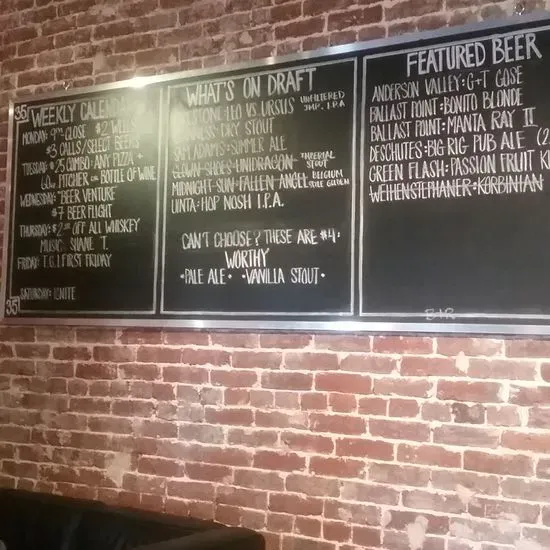 35
WEEKLY CALEND
MONDAY: 9PM CLOSE $2 WELLS
$3 CALLS/SELECT BEERS
TUESDAY: $25 COMBO: ANY PIZZA +
60oz PITCHER OR BOTTLE OF WINE
WEDNESDAY: "BEER VENTURE"
$7 BEER FLIGHT
THURSDAY: OFF ALL WHISKEY
MUSIC: SHANE T.
FRIDAY: T.G.I. FIRST FRIDAY
SATURDAY: IGNITE
35
WHAT'S ON DRAFT
LEO VS. URSUS UNFILTERED
IMP. I.P.A
DRY STOUT
SAM ADAMS: SUMMER ALE
CLOWN SHOES: UNDRAGON IMPERIAL STOUT
MIDNIGHT SUN: FALLEN ANGEL BELGIUM STYLE GOLDEN
UINTA: HOP NOSH I.P.A.
CAN'T CHOOSE? THESE ARE #4:
WORTHY
•PALE ALE• •VANILLA STOUT•
FEATURED BEER
ANDERSON VALLEY: G+T GOSE
BALLAST POINT: BONITO BLONDE
BALLAST POINT: MANTA RAY II
DESCHUTES: BIG RIG PUB ALE (2
GREEN FLASH: PASSION FRUIT K
WEIHENSTEPHANER: KORBINIAN